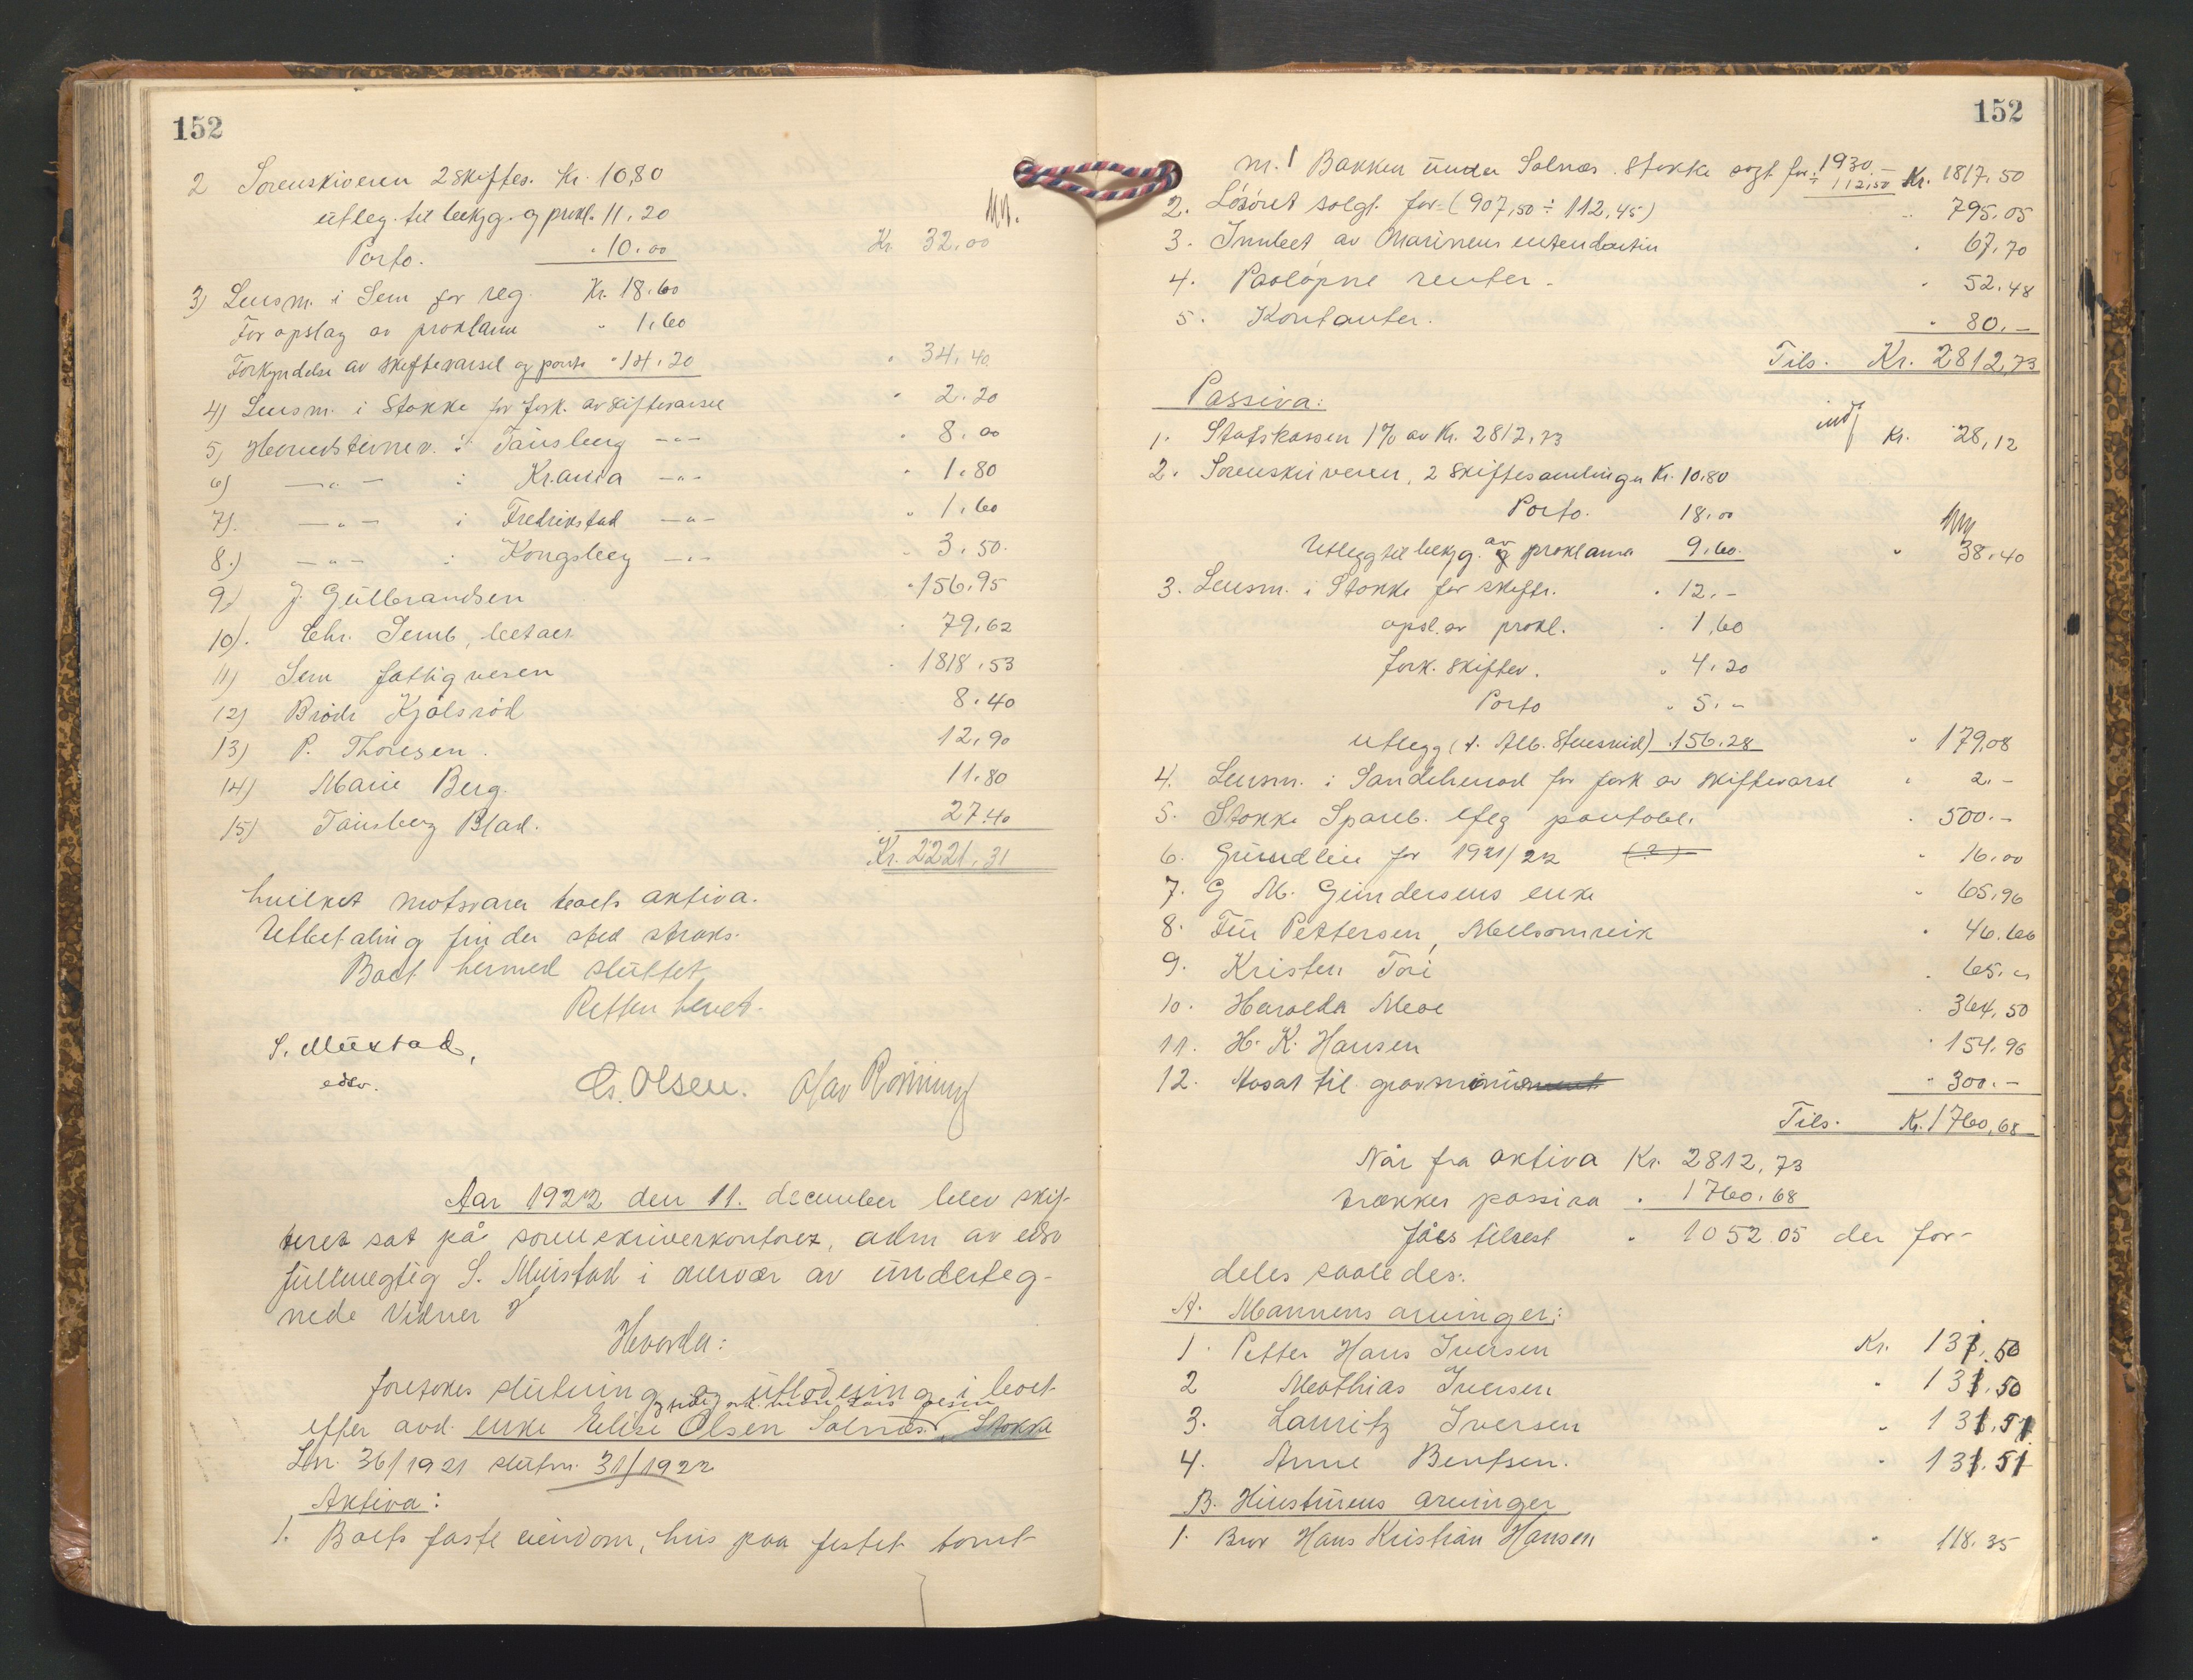 152
2 Sorenskiveren 2 skiftes. Kr. 10,80
utleg. til bekjg. og prokl. 11,20
Porto. " 10.00 Kr. 32,00
3) Lensm. i Sem for reg. Kr. 18.60
For opslag av proklama " 1,60
Forkyndelse av skiftevarsel og porto " 14,20 " 34,40
4) Lensm. i Stokke for fork. av skiftevarsel " 2.20
5) Herredsteinev. i Tønsberg —"— " 8,00
6) —"— i Kr.ania —"— " 1.80
7) —"— i Fredrikstad —"— " 1,60
8.) —"— i Kongsberg —"— " 3,50.
9) J. Gulbrandsen " 156,95
10). Chr. Semb, 79,62
11) Sem fattigvesen 1818,53
12) Brødr Kjølsrød 8.40
13) P. Thoresen. 12,90
14) Marie Berg. 11.80
15) Tønsberg Blad. 27.40
Kr. 2221,31
hvilket motsvarer boets aktiva.
Utbetaling finder sted straks.
Boet hermed sluttet
Retten hevet.
S. Mustad,
edsv.
Cs. Olsen. Olav Rønning
Aar 1922 den 11. december blev skif-
teret sat på sorenskriverkontoret, adm av edsv
fullmegtig S. Mustad i overvær av underteg-
nede vidner
Hvorda:
foretokes slutning og utlodning i boet
efter avd. enke Elise Olsen Solnæs, Stokke
Lnr. 36/1921 slutn. 31/1922
Aktiva:
1. Boets faste eiendom, hus paa festet tomt
152
m. 1 Bakken under Solnæs. Stokke sogt for: 1930.— ÷ 112,50 Kr. 1817,50
2. Løsøret solgt for (907,50 ÷ 112,45) " 795.05
3. Innbet av Marinens intendantur " 67,70
4. Paaløpne renter. " 52.48
5. Kontanter. " 80.—
Tils. Kr. 2812,73
Passiva:
1. Statskassen 1% av Kr. 2812,73 Kr. 28,12
2. Sorenskriveren, 2 skiftesamlinger Kr. 10.80
Porto. 18.00
Utlegg til bekjg. av proklama 9.60. " 38.40
3. Lensm. i Stokke for skiftr. " 12.—
opsl. av prokl. " 1,60
fork. skiftev. " 4.20
Porto " 5.—
utlegg (t. Alb. Stuesnid) 156.28 " 179,08
4. Lensm. i Sandeherred for fork av skiftevarsl " 2.—
5. Stokke Spareb. iflg pantobl. " 500.—
6. Grundleie for 1921/22 (?) " 16.00
7. G M. Gundersens enke " 65,96
8. Fru Pettersen, Melsomvik " 46.66
9. Kristen Tori " 65.—
10. Harolda Moe " 364,50
11. H. K. Hansen " 154,96
12. Avsat til gravmonument " 300.—
Tils. Kr. 1760,68
Når fra aktiva Kr. 2812,73
trækkes passiva " 1760.68
fåes tilrest " 1052.05 der for-
deles saaledes:
A. Mannens arvinger:
1. Petter Hans Iversen Kr. 131,50
2 Mathias Iversen " 131.50
3. Lauritz Iversen " 131.51
4. Anne Bentsen. " 131.51
B. Hustruens arvinger
1. Bror Hans Kristian Hansen " 118.35